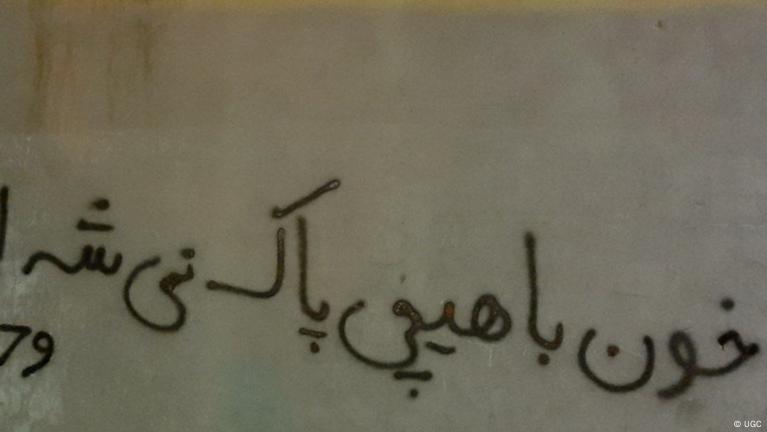 خون با هیچی پاک نمی شه
© UGC